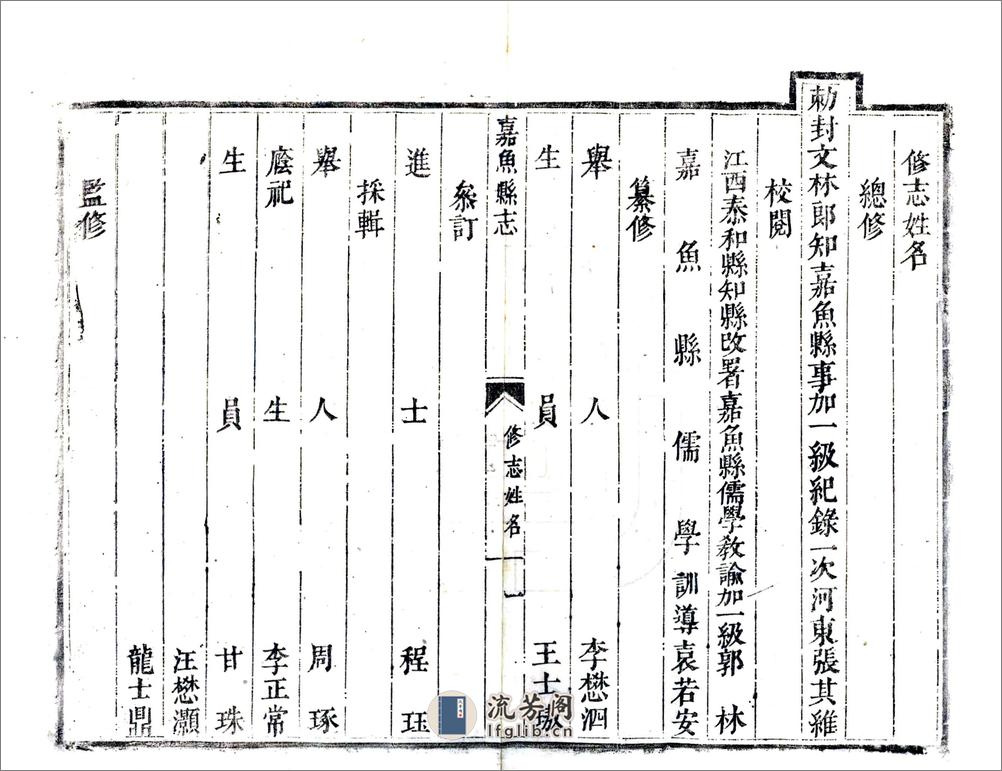 修志姓名
總修
勅封文林郎知嘉魚縣事加一級紀錄一次河東張其維
校閱
江西泰和縣知縣改署嘉魚縣儒學教諭加一級郭林
嘉魚縣儒學訓導袁若安
纂修
舉人李懋泗
生員王士
嘉魚縣志
修志姓名
一
叅訂
進士程珏
採輯
舉人周琢
廕祀生李正常
生員甘珠
汪懋灝
龍士鼎
監修
流芳阁
lfglib.cn